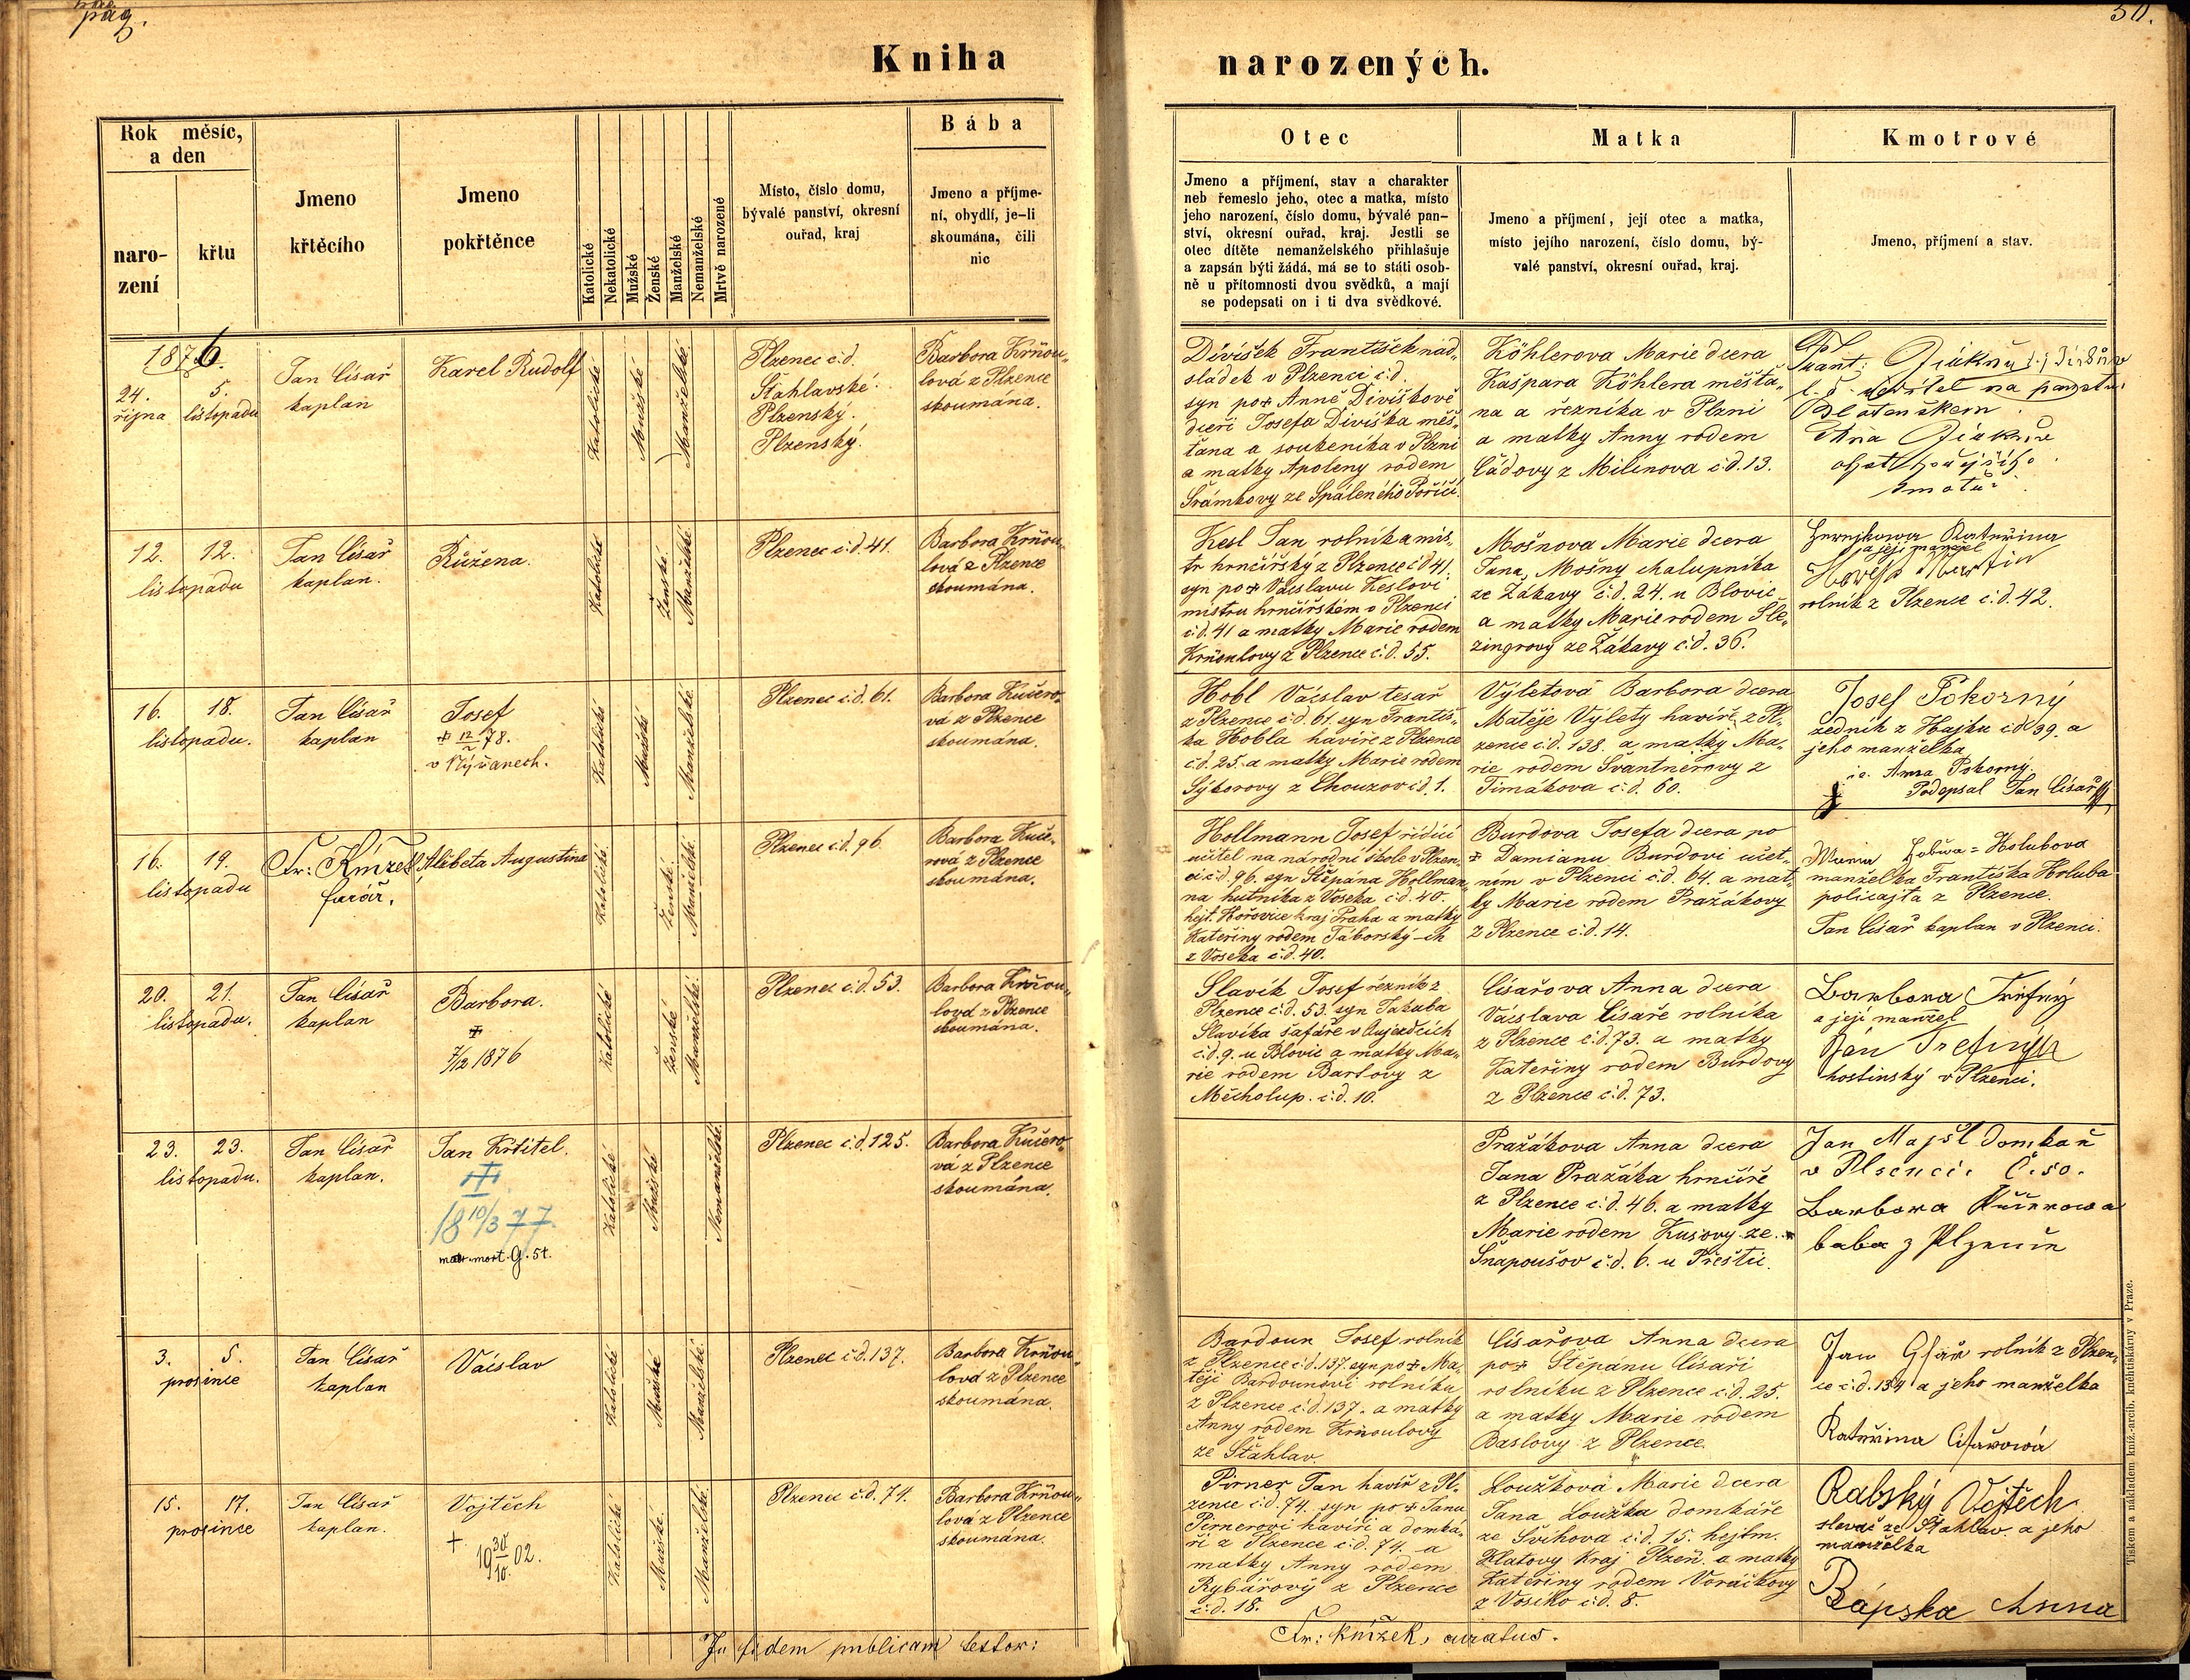 pag.
50.
Kniha
narozených.
Rok měsíc,
a den
naro-
zení
křtu
Jmeno
křtěcího
Jmeno
pokřtěnce
Katolické
Nekatolické
Mužské
Ženské
Manželské
Nemanželské
Mrtvě narozené
Místo, číslo domu,
bývalé panství, okresní
ouřad, kraj
Bába
Jmeno a příjme-
ní, obydlí, je-li
skoumána, čili
nic
Otec
Jmeno a příjmení, stav a charakter
neb řemeslo jeho, otec a matka, místo
jeho narození, číslo domu, bývalé pan-
ství, okresní ouřad, kraj. Jestli se
otec dítěte nemanželského přihlašuje
a zapsán býti žádá, má se to státi osob-
ně u přítomnosti dvou svědků, a mají
se podepsati on i ti dva svědkové.
Matka
Jmeno a příjmení, její otec a matka,
místo jejího narození, číslo domu, bý-
valé panství, okresní ouřad, kraj.
Kmotrové
Jmeno, příjmení a stav.
1876.
24.
října
5.
listopadu
Jan Císař
kaplan
Karel Rudolf
Katolické
Mužské
Manželské
Plzenec č.d.
Šťahlavské
Plzenský.
Plzenský.
Barbora Krňou-
lová z Plzence
skoumána.
Divíšek František nád-
sládek v Plzenci č.d.
syn po ‡ Anně Divíškově
dceři Josefa Divíška měš-
ťana a soukeníka v Plzni
a matky Apoleny rodem
Šrámkovy ze Spáleného Poříčí.
Köhlerova Marie dcera
Kašpara Köhlera měšťa-
na a řezníka v Plzni
a matky Anny rodem
Čádovy z Milínova č.d. 13.
na panství
12. 12.
listopadu
Jan Císař
kaplan.
Růžena.
Katolické
Ženské
Manželské
Plzenec č.d. 41.
Barbora Krňou-
lová z Plzence
skoumána.
Kesl Jan rolník a mis-
tr hrnčířský z Plzence č.d 41.
syn po ‡ Václavu Keslovi
mistru hrnčířském v Plzenci
č.d. 41 a matky Marie rodem
Krňoulovy z Plzence č.d. 55.
Mošnova Marie dcera
Jana Mošny chalupníka
ze Žákavy č.d. 24. u Blovic
a matky Marie rodem Šle-
zingrovy ze Žákavy č.d. 36.
Kateřina
a její manžel
Martin
rolník z Plzence č.d. 42.
16. 18.
listopadu.
Jan Císař
kaplan
Josef
‡ 12/2 78.
v Nýřanech.
Katolické
Mužské
Manželské
Plzenec č.d. 61.
Barbora Kučero-
vá z Plzence
skoumána.
Hobl Václav tesař
z Plzence č.d. 61. syn Františ-
ka Hobla havíře z Plzence
č.d. 25. a matky Marie rodem
Sýkorovy z Chouzov č.d. 1.
Výletová Barbora dcera
Matěje Výlety havíře z Pl-
zence č.d. 138. a matky Ma-
rie rodem Švantnerovy z
Timákova č.d. 60.
Josef Pokorný
zedník z Hájku č.d 39. a
jeho manželka
Anna Pokorný.
Podepsal Jan Císař
16. 19.
listopadu
Fr: Knížek,
farář.
Alžběta Augustina
Katolické
Ženské
Manželské
Plzenec č.d. 96.
Barbora Kuče-
rová z Plzence
skoumána.
Hollmann Josef řídící
učitel na národní škole v Plzen-
ci č.d. 96. syn Štěpána Hollman-
na hutníka z Voseka č.d. 40.
hejt. Hořovice kraj Praha a matky
Kateřiny rodem Táborský-ch
z Voseka č.d. 40.
Burdova Josefa dcera po
‡ Damianu Burdovi učet-
ním v Plzenci č.d. 64. a mat-
ky Marie rodem Pražákovy
z Plzence č.d. 14.
Holubova
manželka Františka Holuba
policajta z Plzence.
Jan Císař kaplan v Plzenci.
20. 21.
listopadu.
Jan Císař
kaplan
Barbora.
‡
7/12 1876
Katolické
Ženské
Manželské
Plzenec č.d. 53.
Barbora Krňou-
lová z Plzence
skoumána.
Slavík Josef řezník z
Plzence č.d. 53. syn Jakuba
Slavíka šafáře v Aujezdcích
č.d. 9. u Blovic a matky Ma-
rie rodem Bartovy z
Měcholup. č.d. 10.
Císařova Anna dcera
Václava Císaře rolníka
z Plzence č.d. 73. a matky
Kateřiny rodem Burdovy
z Plzence č.d. 73.
Barbora Trefný
a její manžel
Jan Trefný
hostinský v Plzenci.
23. 23.
listopadu.
Jan Císař
kaplan.
Jan Křtitel.
‡
18 10/3 77.
matr. mort. G. 51.
Katolické
Mužské
Nemanželské
Plzenec č.d. 125.
Barbora Kučero-
vá z Plzence
skoumána.
Pražákova Anna dcera
Jana Pražáka hrnčíře
z Plzence č.d. 46. a matky
Marie rodem Kusovy ze
Šnapoušov č.d. 6. u Přeštic.
Jan Majšl domkař
v Plzenci. Č. 50.
Barbora Kučerowa
baba z Plzence
3. 5.
prosince
Jan Císař
kaplan
Václav
Katolické
Mužské
Manželské
Plzenec č.d. 137.
Barbora Krňou-
lová z Plzence
skoumána.
Bardoun Josef rolník
z Plzence č.d. 137. syn po ‡ Ma-
těji Bardounovi rolníku
z Plzence č.d. 137. a matky
Anny rodem Krňoulovy
ze Šťahlav.
Císařova Anna dcera
po ‡ Štěpánu Císaři
rolníku z Plzence č.d. 25.
a matky Marie rodem
Baslovy z Plzence.
Jan Císař rolník z Plzen-
ce č.d. 134 a jeho manželka
Kateřina Císařowá
15. 17.
prosince
Jan Císař
kaplan.
Vojtěch
+ 19 30/10. 02.
Katolické
Mužské
Manželské
Plzenec č.d. 74.
Barbora Krňou-
lová z Plzence
skoumána.
Pirner Jan havíř z Pl-
zence č.d. 74. syn po ‡ Janu
Pirnerovi havíři a domká-
ři z Plzence č.d. 74. a
matky Anny rodem
Rybářovy z Plzence
č.d. 18.
Loužkova Marie dcera
Jana Loužka domkáře
ze Švihova č.d. 15. hejtm.
Klatovy Kraj Plzeň. a matky
Kateřiny rodem Voráčkovy
z Vosíko č.d. 8.
Rabský Vojtěch
slevač ze Šťahlav. a jeho
manželka
Rápska Anna
In fidem publicam testor:
Fr: Knížek, curatus.
Tiskem a nákladem kníž.-arcib. knihtiskárny v Praze.